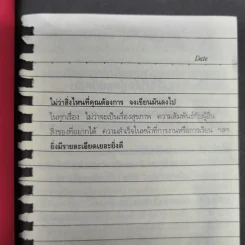 Date
ไม่ว่าสิ่งไหนที่คุณต้องการ จงเขียนมันลงไป
ในทุกเรื่อง ไม่ว่าจะเป็นเรื่องสุขภาพ ความสัมพันธ์กับผู้อื่น
สิ่งของที่อยากได้ ความสำเร็จในหน้าที่การงานหรือการเรียน ฯลฯ
ยิ่งมีรายละเอียดเยอะยิ่งดี